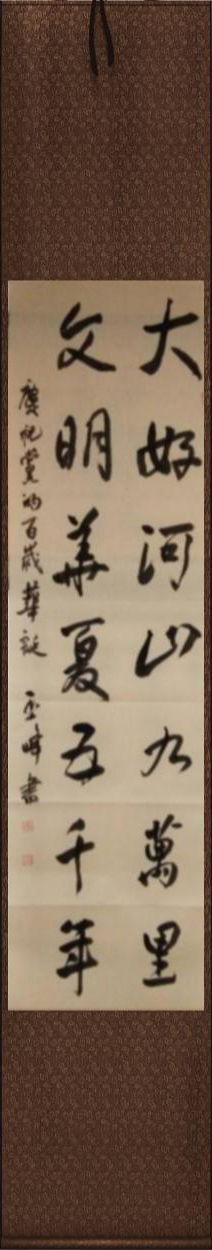 大好河山九萬里
文明華夏五千年
慶祝黨的百歲華誕 玉峰書